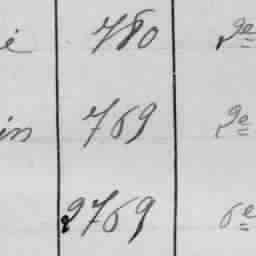 é 780 2e
in 769 2e
2769 6e